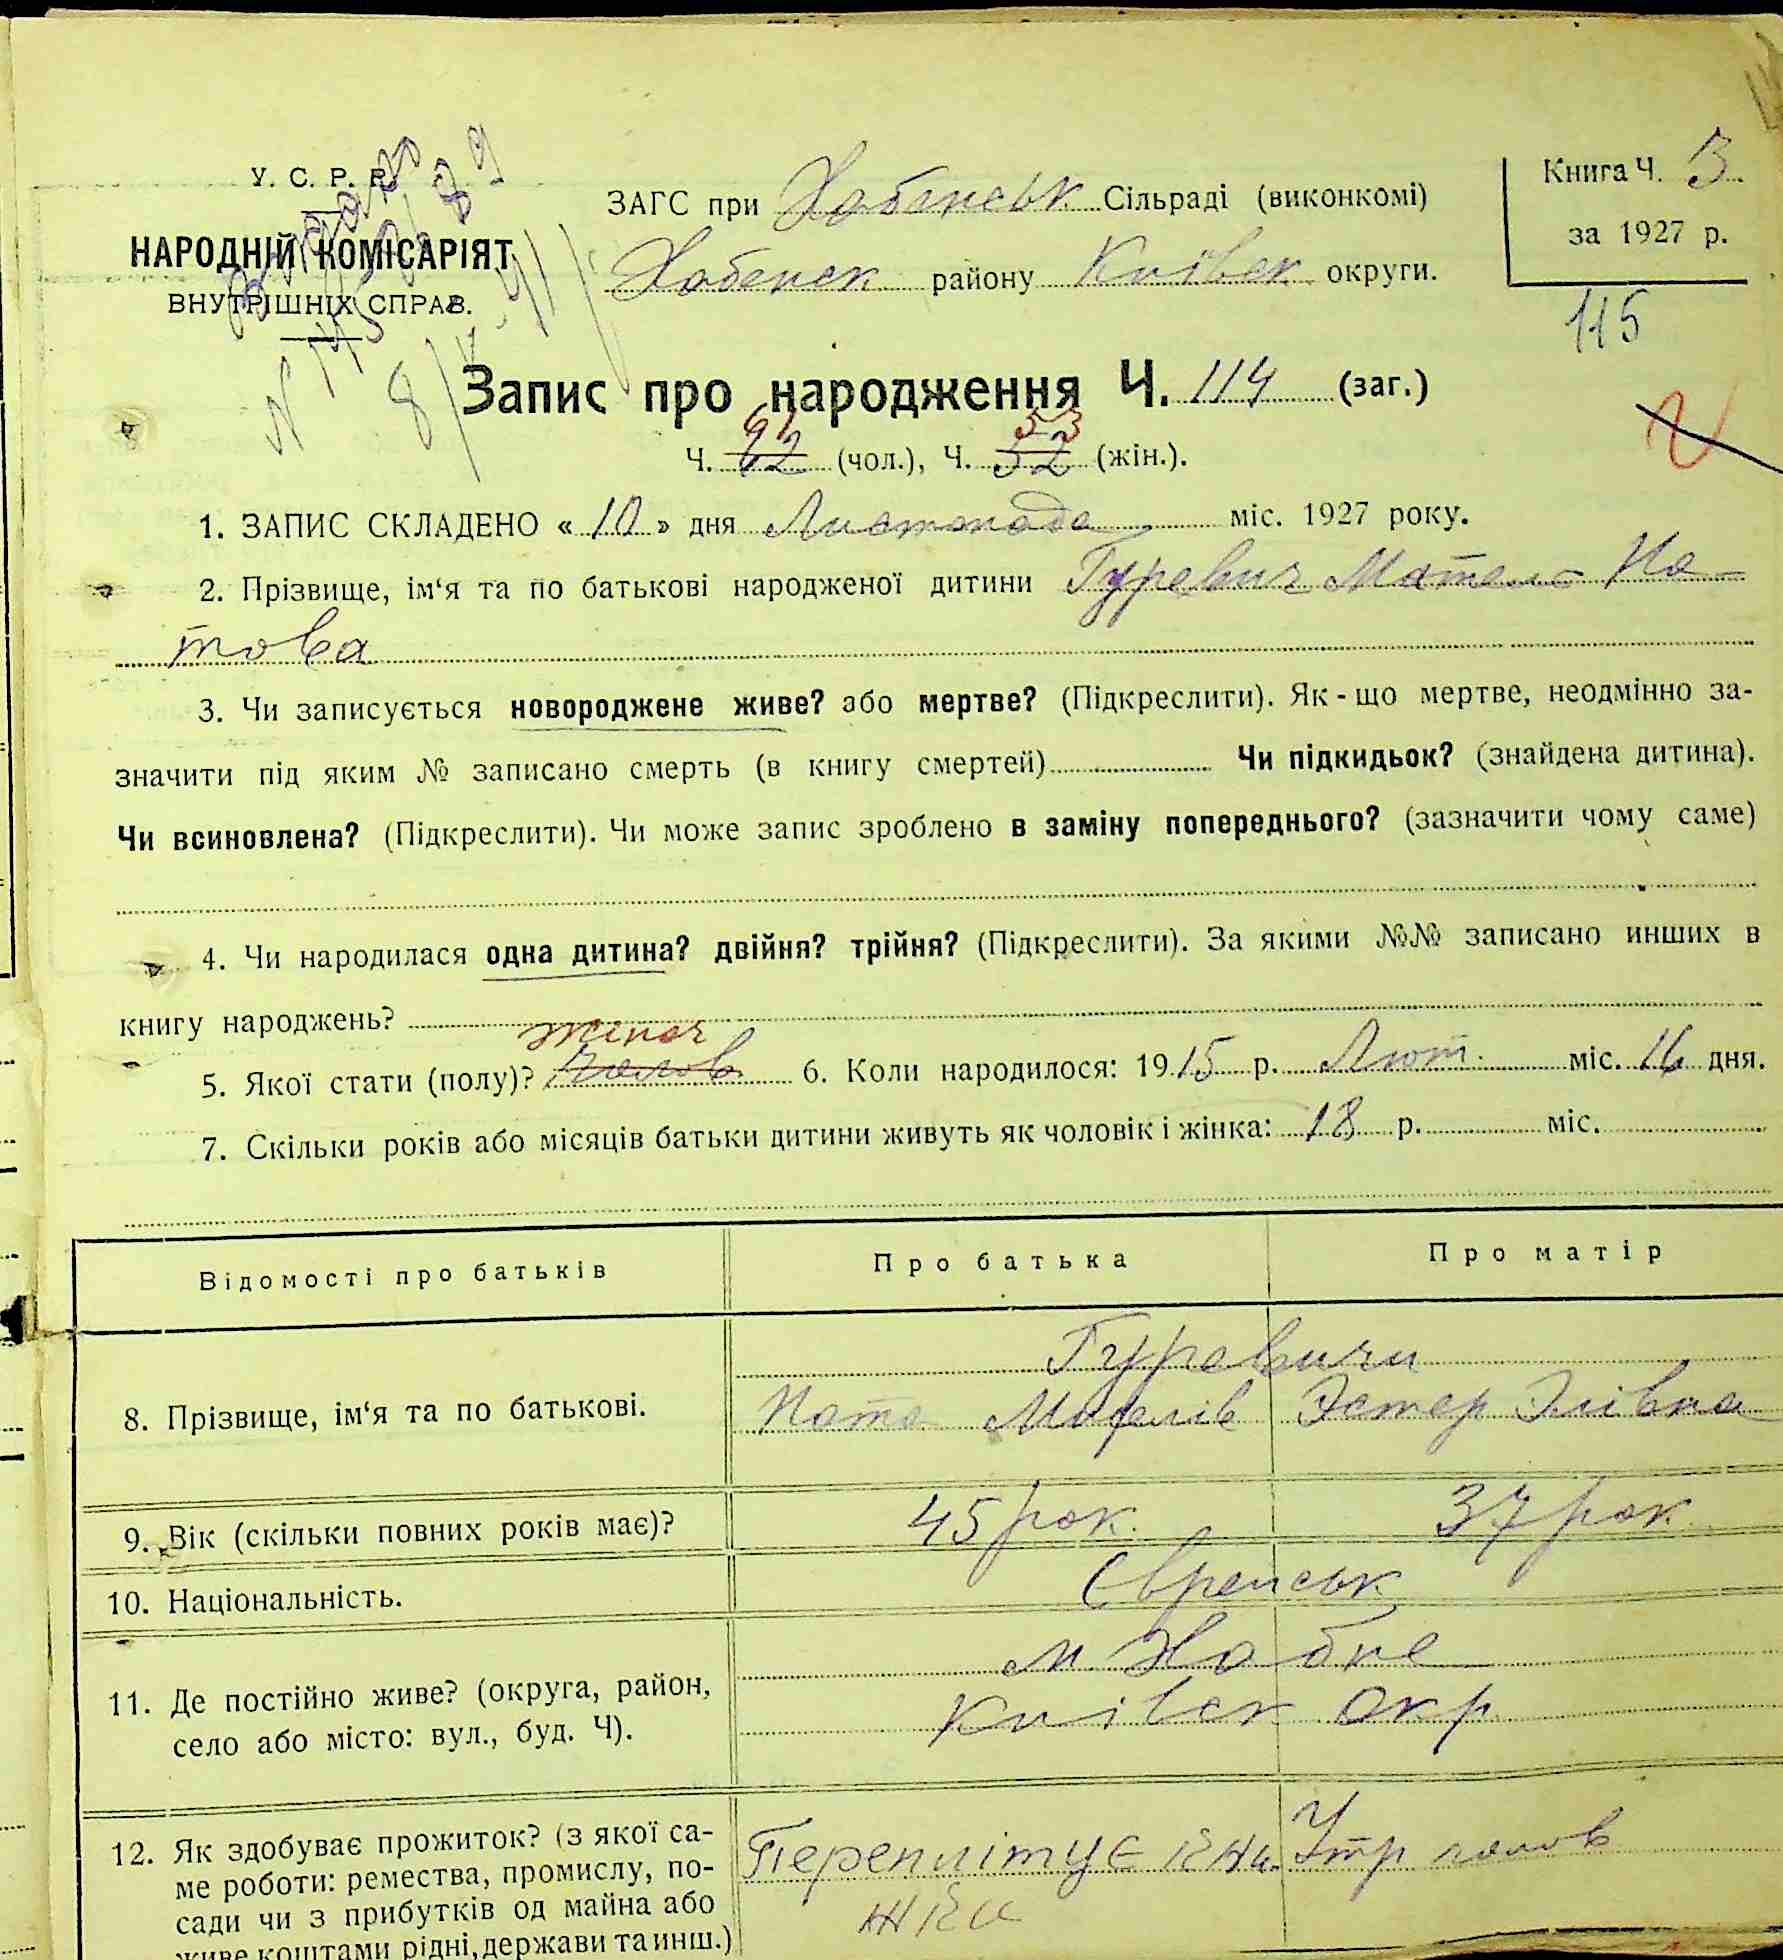 У. С. Р. Р.
НАРОДНІЙ КОМІСАРІЯТ
ВНУТРІШНІХ СПРАВ.
ЗАГС при Хабенськ Сільраді (виконкомі)
Хабенск району Київск округи.
Книга Ч. 3
за 1927 р.
115
Запис про народження Ч. 114 (заг.)
61 53
Ч. 62 (чол.), Ч. 52 (жін.).
1. ЗАПИС СКЛАДЕНО « 10 » дня Листопада міс. 1927 року.
2. Прізвище, ім‘я та по батькові народженої дитини Гуревич Мотель На-
това
3. Чи записується новороджене живе? або мертве? (Підкреслити). Як-що мертве, неодмінно за-
значити під яким № записано смерть (в книгу смертей) Чи підкидьок? (знайдена дитина).
Чи всиновлена? (Підкреслити). Чи може запис зроблено в заміну попереднього? (зазначити чому саме)
4. Чи народилася одна дитина? двійня? трійня? (Підкреслити). За якими №№ записано инших в
книгу народжень?
жіноч
5. Якої стати (полу)? чолов 6. Коли народилося: 1915 р. Лют. міс. 16 дня.
7. Скільки років або місяців батьки дитини живуть як чоловік і жінка: 18 р. міс.
Відомості про батьків Про батька Про матір
Гуревичи
8. Прізвище, ім‘я та по батькові. Ната Эстер Элівна
9. Вік (скільки повних років має)? 45 рок. 37 рок
10. Національність. Єврейськ
11. Де постійно живе? (округа, район,
село або місто: вул., буд. Ч).
м. Хабне
Київск Окр
12. Як здобуває прожиток? (з якої са-
ме роботи: ремества, промислу, по-
сади чи з прибутків од майна або
живе коштами рідні, держави та инш.)
Переплітує кни
жки
Утр чолов